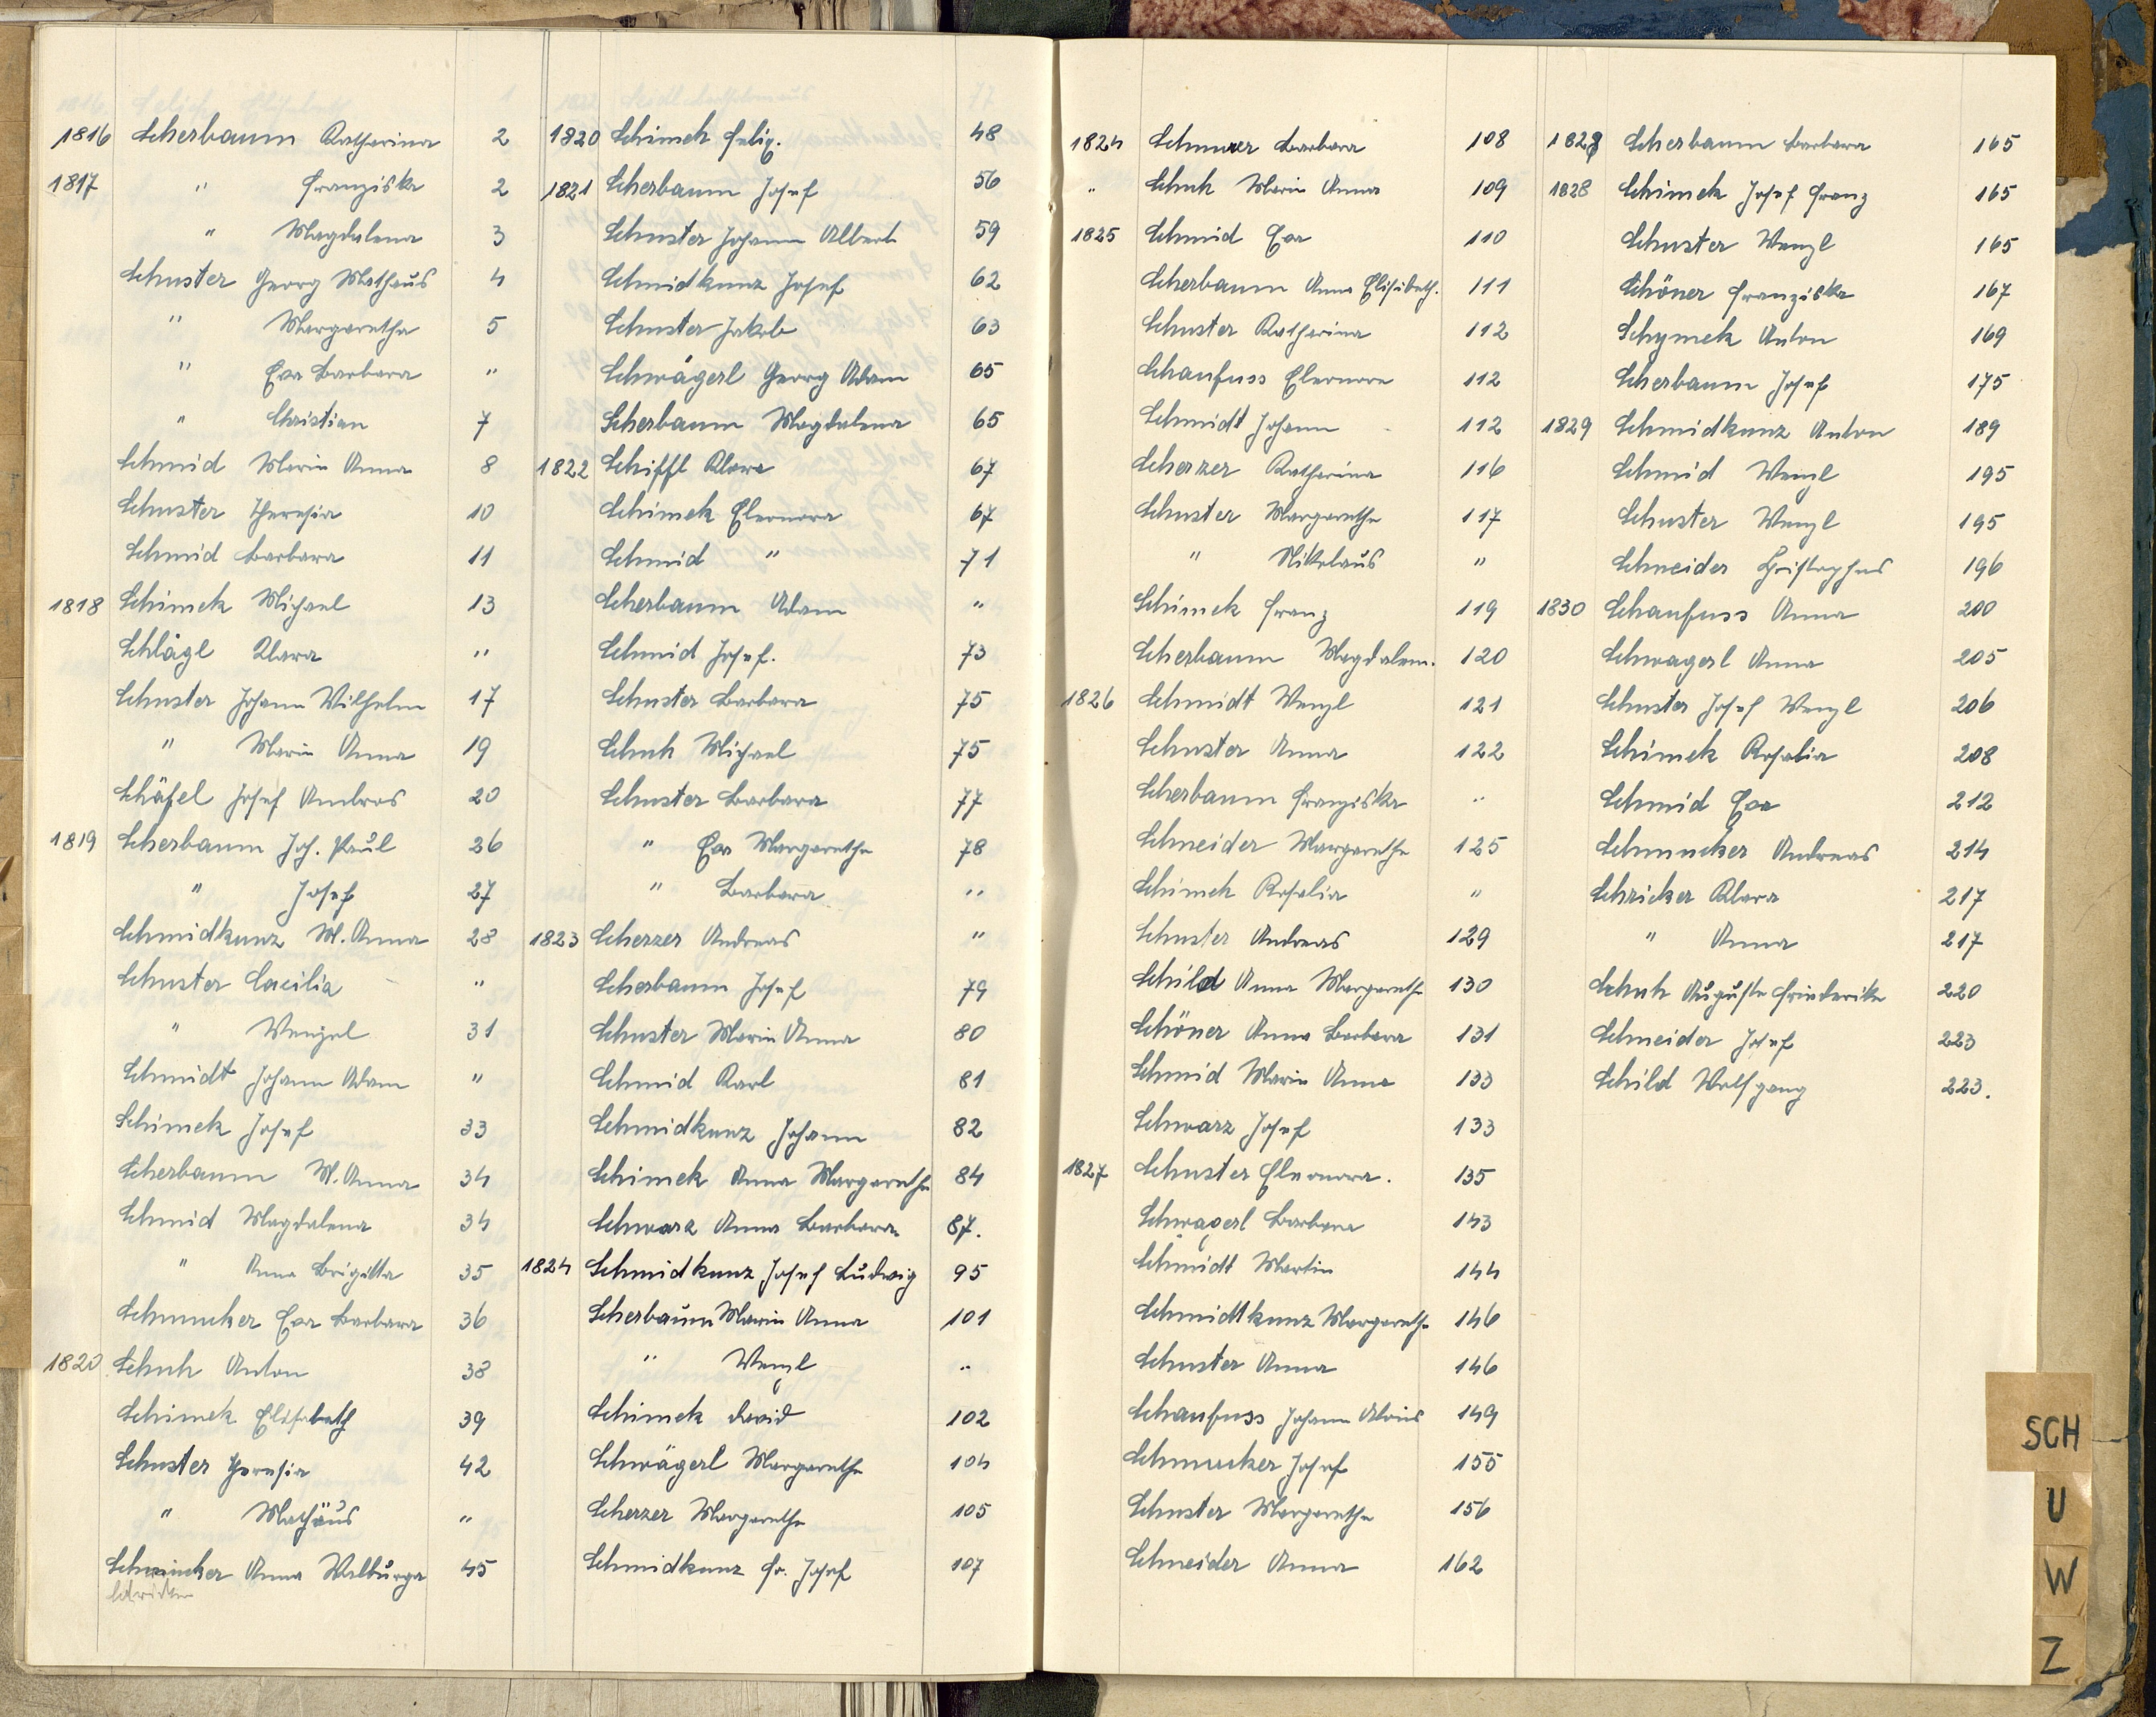 1816 Scherbaum Katharina 2
1817 " Franziska 2
" Magdalena 3
Schuster Georg Mathäus 4
" Margaretha 5
" Eva Barbara "
" Christian 7
Schmid Maria Anna 8
Schuster Theresia 10
Schmid Barbara 11
1818 Schimek Michael 13
Schlägl Klara "
Schuster Johann Wilhelm 17
" Maria Anna 19
Schäfel Josef Ambros 20
1819 Scherbaum Joh. Paul 26
" Josef 27
Schmidkunz M. Anna 28
Schuster Cacilia "
" Wenzel 31
Schmidt Johann Adam "
Schimek Josef 33
Scherbaum M. Anna 34
Schmid Magdalena 34
" Anna Brigitta 35
Schmucker Eva Barbara 36
1820 Schuh Anton 38
Schimek Elisabeth 39
Schuster Theresia 42
" Mathäus "
Anna Walburga 45
1820 Schimek Felix. 48
1821 Scherbaum Josef 56
Schuster Johann Albert 59
Schmidkunz Josef 62
Schuster Jakob 63
Schwägerl Georg Adam 65
Scherbaum Magdalena 65
1822 Schiffl Klara 67
Schimek Eleonora 67
Schmid " 71
Scherbaum Adam "
Schmid Josef. 73
Schuster Barbara 75
Schuh Michael 75
Schuster Barbara 77
" Eva Margarethe 78
" Barbara "
1823 Scherzer Andreas "
Scherbaum Josef 79
Schuster Maria Anna 80
Schmid Karl 81
Schmidkunz Johann 82
Schimek Anna Margarethe 84
Schwarz Anna Barbara 87.
1824 Schmidkunz Josef Ludwig 95
Scherbaum Maria Anna 101
" Wenzl "
Schimek David 102
Schwägerl Margarethe 104
Scherzer Margarethe 105
Schmidkunz Fr. Josef 107
1824 Barbara 108
" Schuh Maria Anna 109
1825 Schmid Eva 110
Scherbaum Anna Elisabeth. 111
Schuster Katharina 112
Schaufuss Eleonore 112
Schmidt Johann 112
Scherzer Katharina 116
Schuster Margarethe 117
" Nikolaus "
Schimek Franz 119
Scherbaum Magdalena. 120
1826 Schmidt Wenzl 121
Schuster Anna 122
Scherbaum Franziska "
Schneider Margarethe 125
Schimek Rosalia "
Schuster Andreas 129
Schild Anna Margarethe 130
Schöner Anna Barbara 131
Schmid Maria Anna 133
Schwarz Josef 133
1827 Schuster Eleonora. 135
Schwagerl Barbara 143
Schmidt Martin 144
Schmidtkunz Margarethe 146
Schuster Anna 146
Schaufuss Johann Alois 149
Schmucker Josef 155
Schuster Margarethe 156
Schneider Anna 162
Scherbaum Barbara 165
1828 Schimek Josef Franz 165
Schuster Wenzl 165
Schöner Franziska 167
Schymek Anton 169
Scherbaum Josef 175
1829 Schmidkunz Anton 189
Schmid Wenzl 195
Schuster Wenzl 195
Schneider 196
1830 Schaufuss Anna 200
Schwagerl Anna 205
Schuster Josef Wenzl 206
Schimek Rosalia 208
Schmid Eva 212
Schmucker Andreas 214
Schricker Klara 217
" Anna 217
Schuh Auguste Friederike 220
Schneider Josef 223
Schild Wolfgang 223.
SCH
U
W
Z